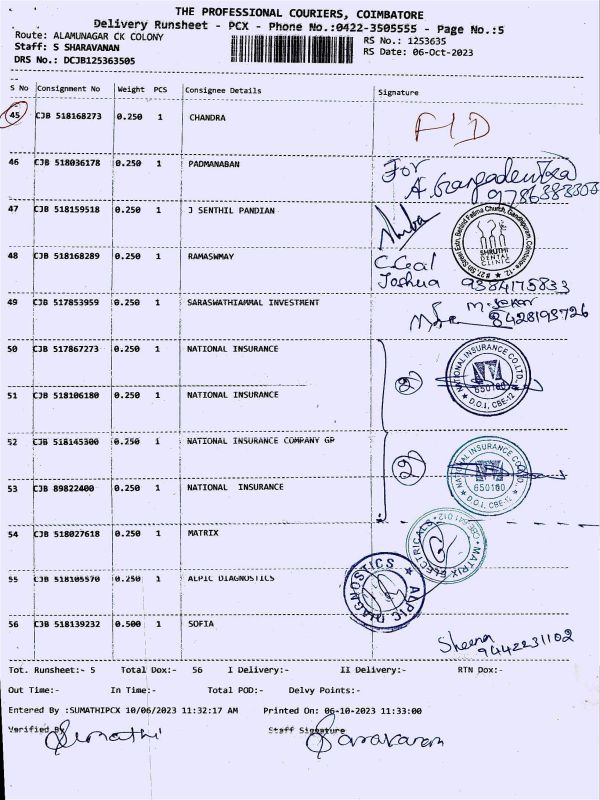 THE PROFESSIONAL COURIERS, COIMBATORE
Delivery Runsheet - PCX - Phone No.:0422-3505555 - Page No.:5
Route: ALAMUNAGAR CK COLONY
RS No.: 1253635
Staff: S SHARAVANAN
RS Date: 06-Oct-2023
DRS No.: DCJB125363505
S No Consignment No Weight PCS Consignee Details Signature
45 CJB 518168273 0.250 1 CHANDRA
46 CJB 518036178 0.250 1 PADMANABAN For
9786383303
47 CJB 518159518 0.250 1 J SENTHIL PANDIAN
SHRUTHI DENTAL CLINIC
48 CJB 518168289 0.250 1 RAMASWMAY
Joshua 9384175833
49 CJB 517853959 0.250 1 SARASWATHIAMMAL INVESTMENT
8428193726
50 CJB 517867273 0.250 1 NATIONAL INSURANCE
NATIONAL INSURANCE CO.LTD. 650100 D.O.I, CBE-12
51 CJB 518106180 0.250 1 NATIONAL INSURANCE
52 CJB 518145300 0.250 1 NATIONAL INSURANCE COMPANY GP
650100 D.O.I, CBE-12
53 CJB 89822400 0.250 1 NATIONAL INSURANCE
54 CJB 518027618 0.250 1 MATRIX
MATRIX ELECTRICALS
55 CJB 518105570 0.250 1 ALPIC DIAGNOSTICS
ALPIC DIAGNOSTICS
56 CJB 518139232 0.500 1 SOFIA
Sheena
9442231102
Tot. Runsheet:- 5 Total Dox:- 56 I Delivery:- II Delivery:- RTN Dox:-
Out Time:- In Time:- Total POD:- Delvy Points:-
Entered By :SUMATHIPCX 10/06/2023 11:32:17 AM Printed On: 06-10-2023 11:33:00
Verified By Staff Signature
Sumathi Saravanan